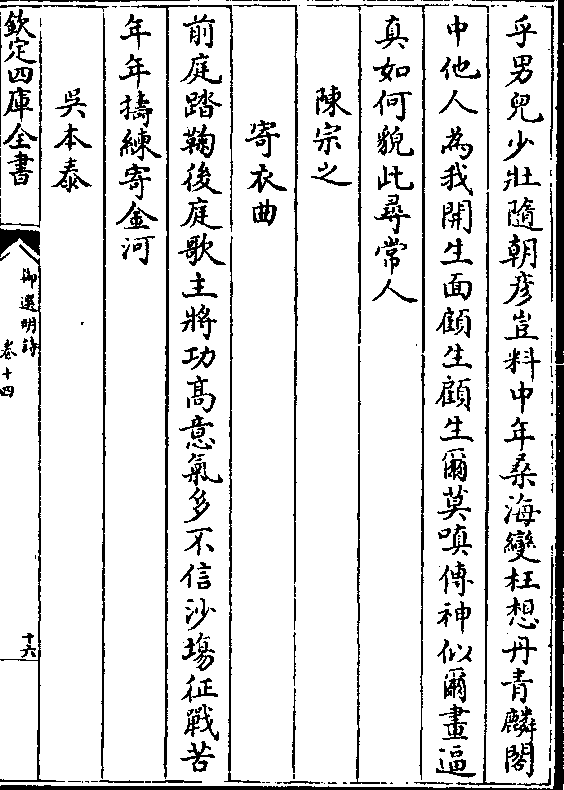 乎男兒少壯隨朝彥豈料中年桑海變枉想丹青麟閣
中他人為我開生面顧生顧生爾莫嗔傳神似爾畫逼
真如何貌此尋常人
陳宗之
寄衣曲
前庭踏鞠後庭歌主將功高意氣多不信沙塲征戰苦
年年擣練寄金河
吳本泰
欽定四庫全書
御選明詩
卷十四
十六